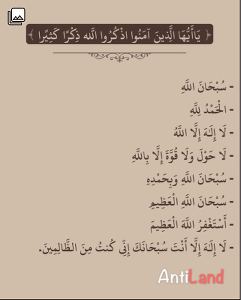 ﴿ يَاأَيُّهَا الَّذِينَ آمَنُوا اذْكُرُوا اللَّه ذِكْرًا كَثِيرًا ﴾
- سُبْحَانَ اللَّهِ
- الْحَمْدُ لِلَّهِ
- لَا إِلَهَ إِلَّا اللَّهُ
- لَا حَوْلَ وَلَا قُوَّةَ إِلَّا بِاللَّهِ
- سُبْحَانَ اللَّهِ وَبِحَمْدِهِ
- سُبْحَانَ اللَّهِ الْعَظِيمِ
- أَسْتَغْفِرُ اللَّهَ الْعَظِيمَ
- لَا إِلَهَ إِلَّا أَنْتَ سُبْحَانَكَ إِنِّي كُنتُ مِنَ الظَّالِمِينَ.
AntiLand